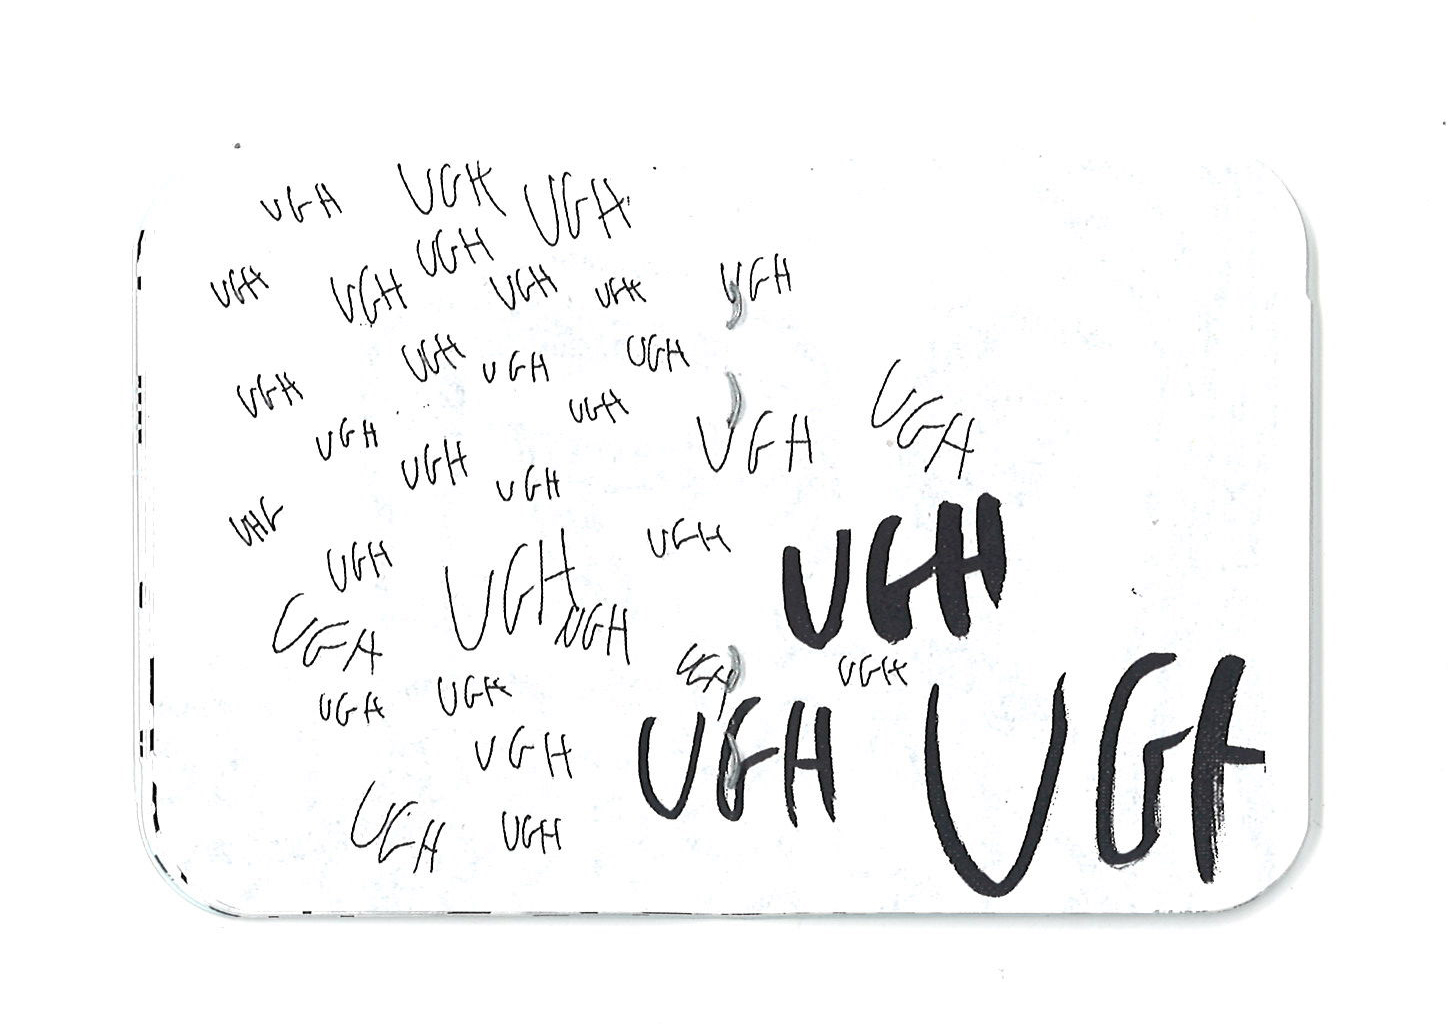 UGH UGH UGH
UGH
UGH UGH UGH UGH UGH
UGH UGH UGH
UGH UGH
UGH UGH UGH
UGH UGH
UHG UGH UGH
UGH UGH
UGH UGH
UGH UGH
UGH UGH
UGH UGH UGH
UGH UGH